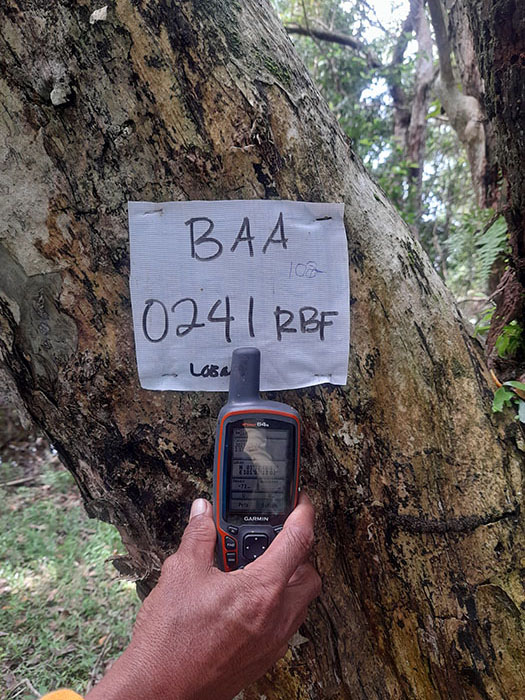 BAA
102
0241 RBF
64s
GARMIN